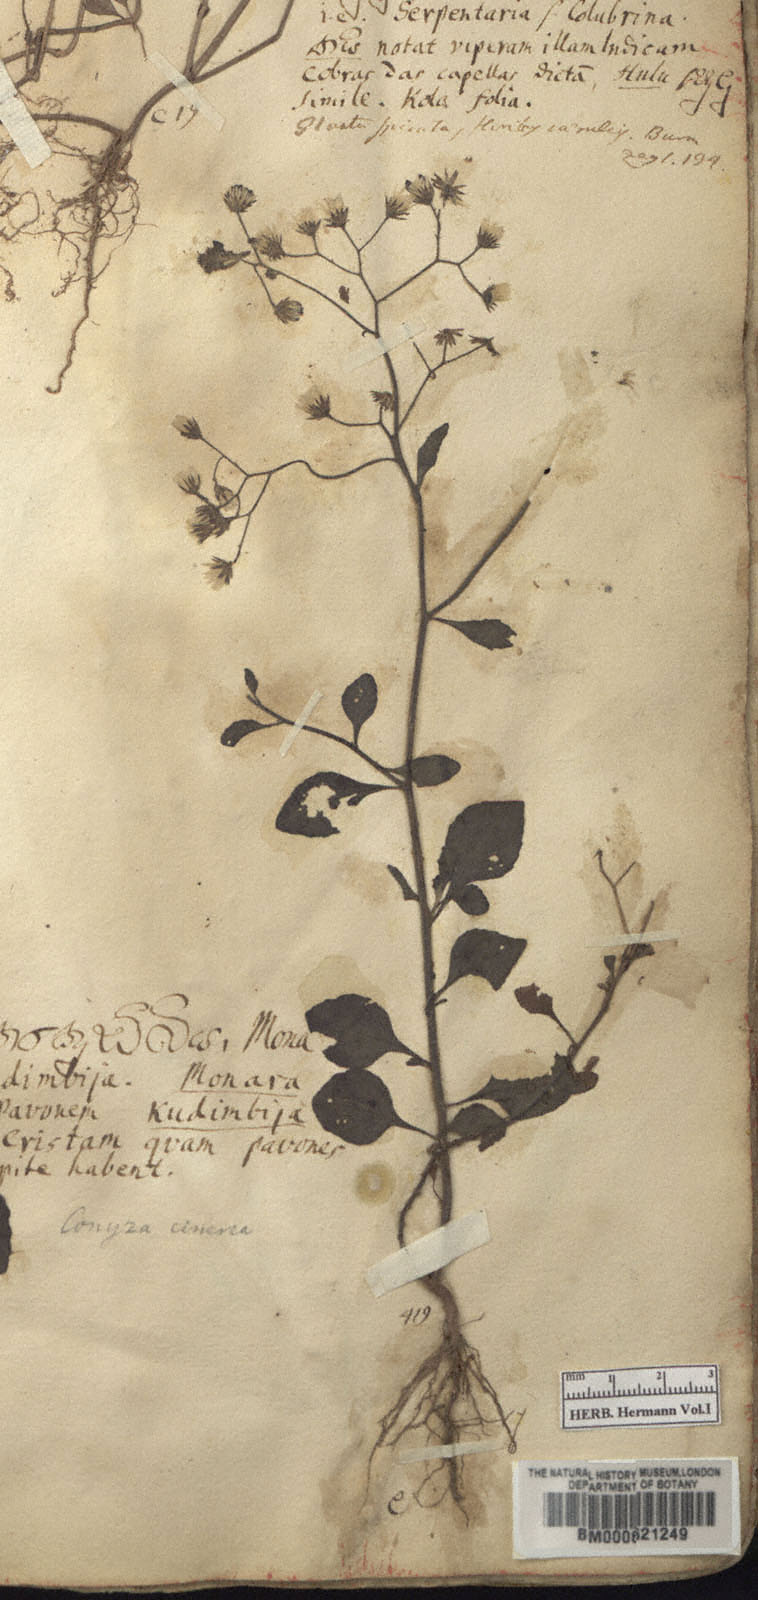 i.e. Serpentaria s. Colubrina.
notat viperam illam Indicam
Cobras das capellas dictā, Hulu
simile. Kola folia.
spicata, Burm
zeyl. 194.
e 17
Mona
dimbija. Monara
pavonem Kudimbija
cristam qvam pavones
pite habent.
Conyza cinerea
419
mm 1 2 3
HERB. Hermann Vol.I
THE NATURAL HISTORY MUSEUM, LONDON
DEPARTMENT OF BOTANY
BM000621249
e